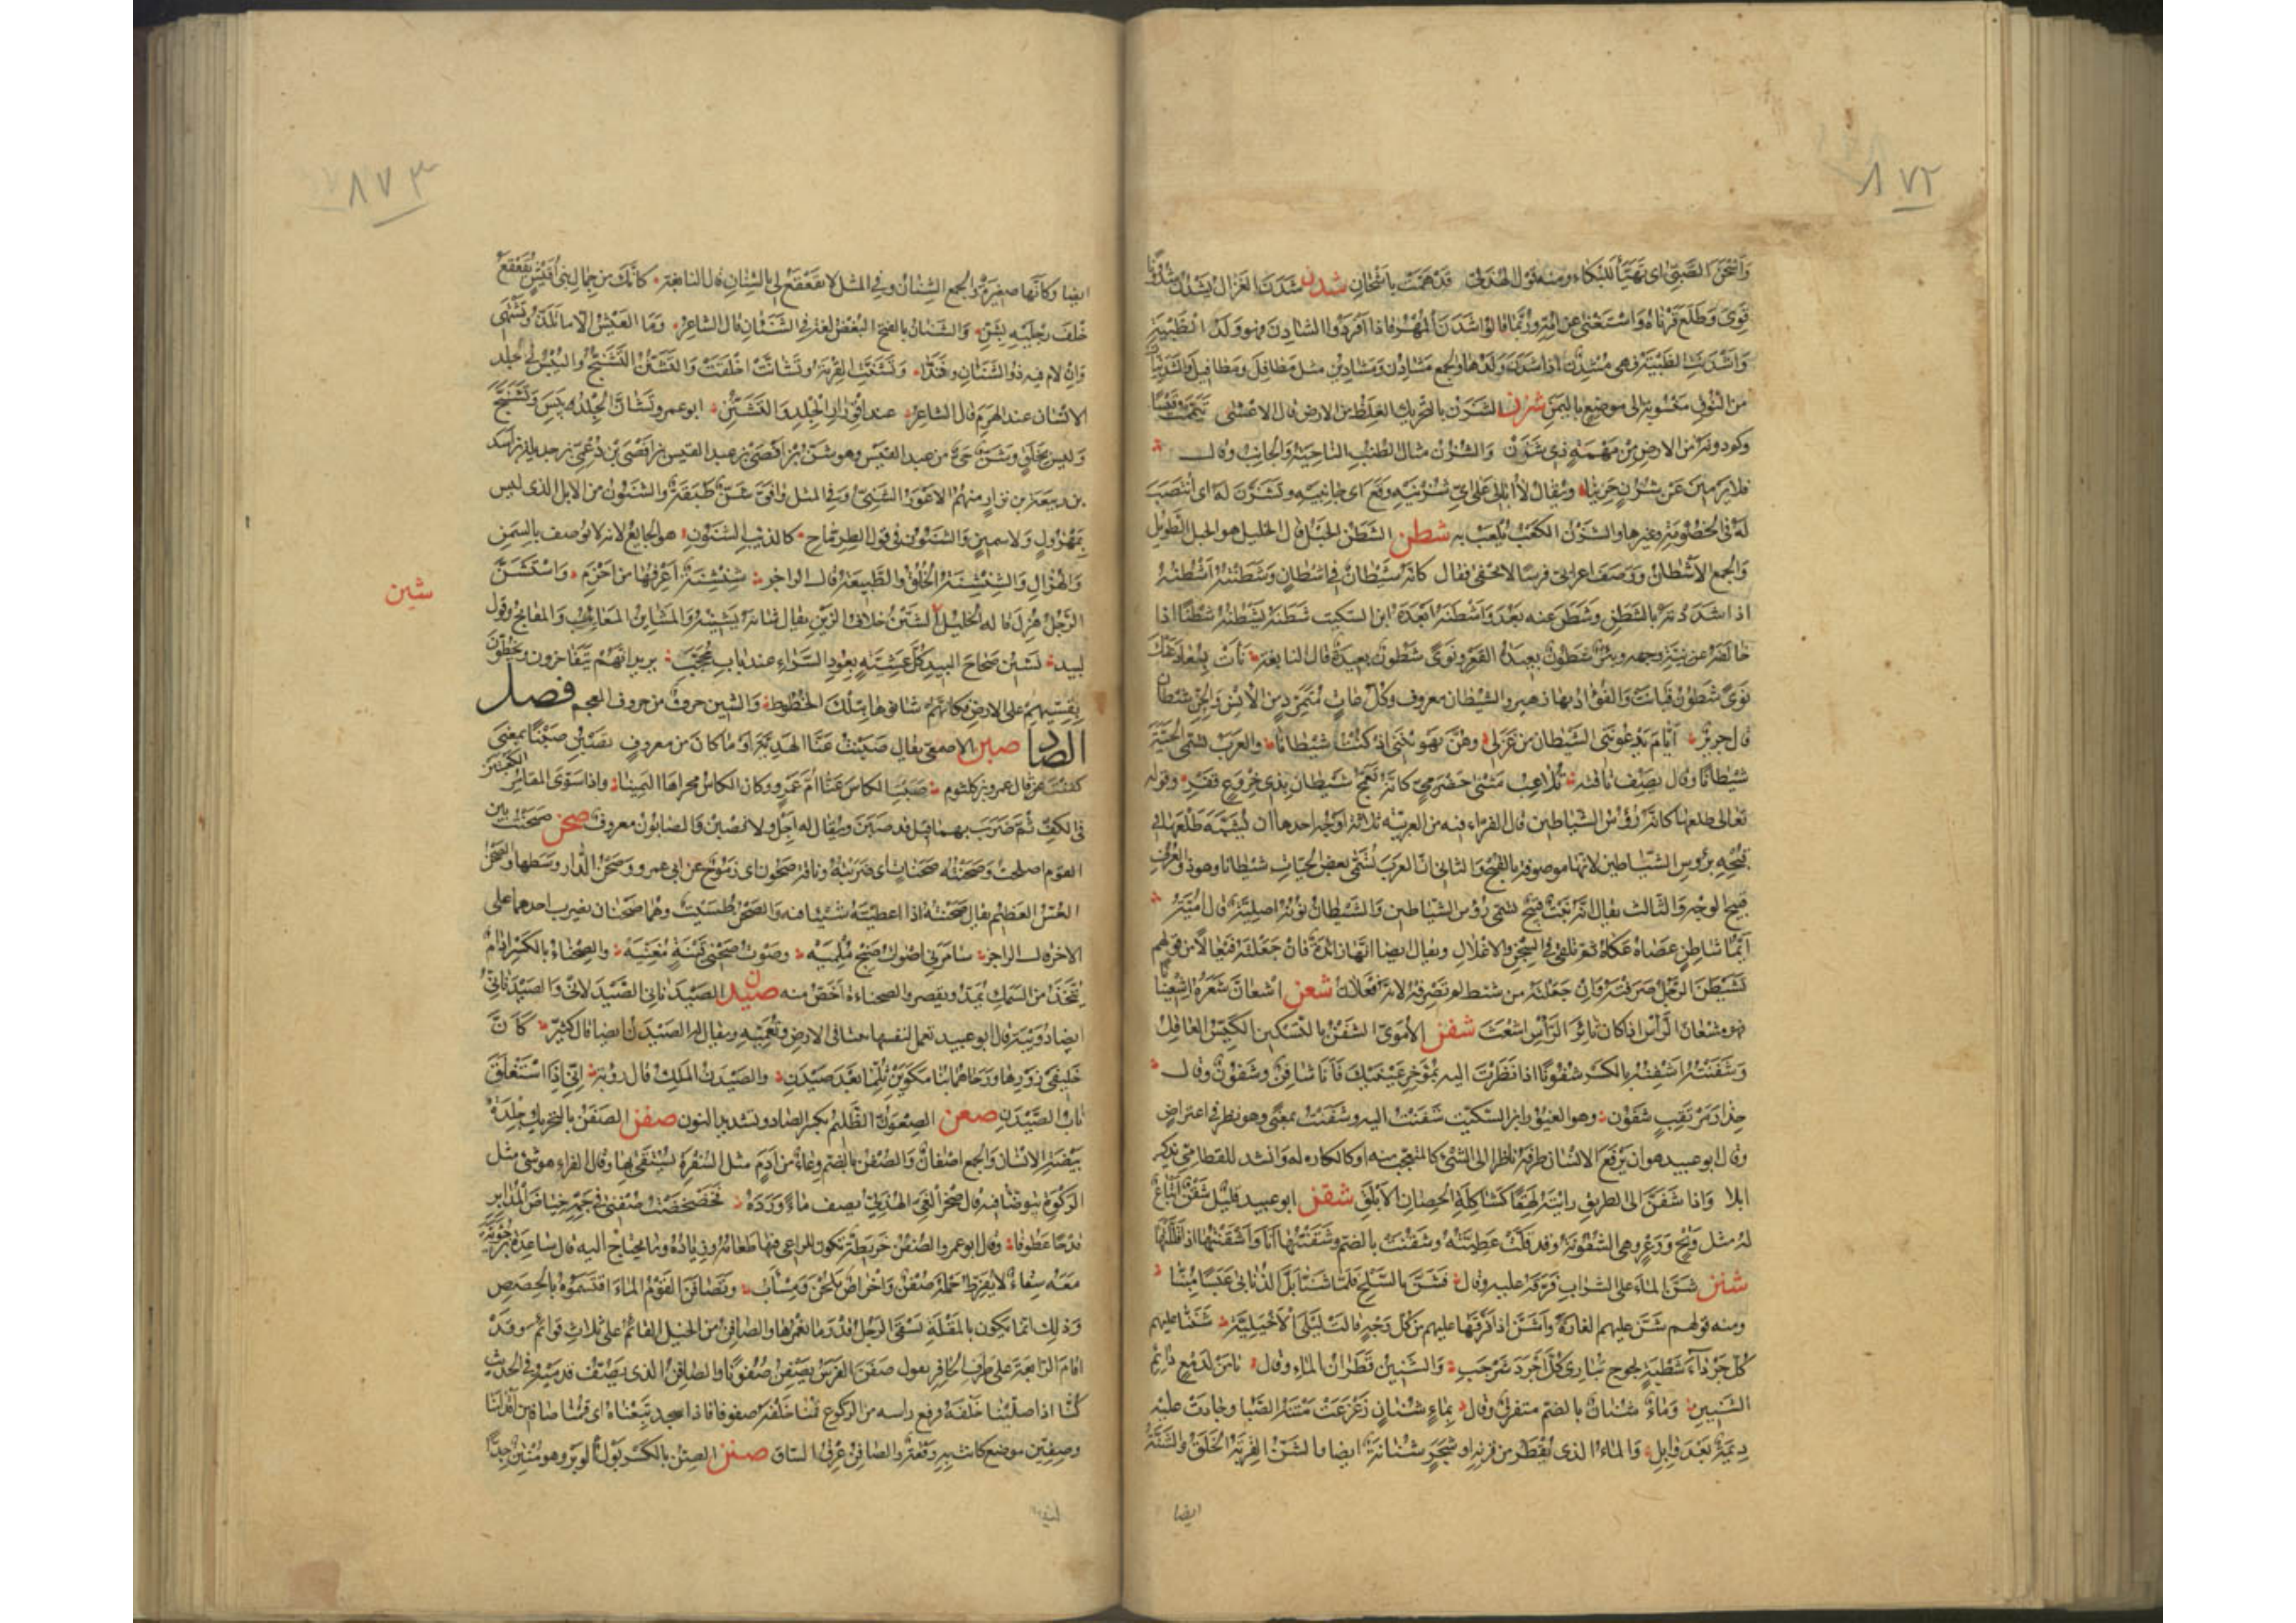 ٨٧٢
وأشحن الصبي اى تهيأ للبكاء ومنه قول الهذلى قد همت باشحان شدن شدن الغزال يشدن شدونا
قوى وطلع قرناه واستغنى عن امه وربما قالوا شدن المهر فاذا افردوا الشادن فهو ولد الظبية
واشدنت الظبية وهى مشدن اذا شدن ولدها والجمع مشادن ومشادين مثل مطافل ومطافيل والشدنيات
من النوق منسوبة الى موضع باليمن شزن الشزن بالتحريك الغليظ من الارض قال الاعشى تيممت قيسا
وكم دونه من الارض من مهمه ذى شزن والشزن مثال الطنب الناحية والجانب وقال
فلا يرمين عن شزن حزينا ويقال لا ابالى على اى شزنيه وقع اى جانبيه وتشزن له اى انتصب
له فى الخصومة وغيرها والشزن الكعب يلعب به شطن الشطن الحبل قال الخليل هو الحبل الطويل
والجمع الاشطان ووصف اعرابى فرسا لا يحفى فقال كانه شيطان فى اشطان وشطنته اشطنه
اذا شددته بالشطن وشطن عنه بعد واشطنه ابعده ابن السكيت شطنه يشطنه شطنا اذا
خالفه عن نية وجهه وبئر شطون بعيدة القعر ونوى شطون بعيدة قال النابغة نأت بسعاد عنك
نوى شطون فبانت والفؤاد بها رهين والشيطان معروف وكل عات متمرد من الانس والجن شيطان
قال جرير ايام يدعوننى الشيطان من غزلى وهن يهويننى اذ كنت شيطانا والعرب تسمى الحية
شيطانا وقال يصف ناقته تلاعب مثنى حضرمى كانه تعمج شيطان بذى خروع قفر وقوله
تعالى طلعها كانه رؤس الشياطين قال الفراء فيه من العربية ثلاثة اوجه احدها ان يشبه طلعها فى
قبحه برؤس الشياطين لانها موصوفة بالقبح والثانى ان العرب تسمى بعض الحيات شيطانا وهو ذو العرف
قبيح الوجه والثالث يقال انه نبت قبيح تسمى رؤس الشياطين والشيطان نونه اصلية قال امية
ايما شاطن عصاه عكاه ثم يلقى فى السجن والاغلال ويقال ايضا انها زائدة فان جعلته فيعالا من قولهم
تشيطن الرجل صرفته وان جعلته من شيط لم تصرفه لانه فعلان شعن اشعان شعره اشعينانا
فهو مشعان الراس اذا كان ثائر الرأس اشعث شفن الاموى الشفن بالتسكين الكيس العاقل
وشفنته اشفنه بالكسر شفونا اذا نظرت اليه بمؤخر عينيك فانا شافن وشفون وقال
حذار مرتقب شفون وهو الغيور ابن السكيت شفنت اليه وشنفت بمعنى وهو نظر فى اعتراض
وقال ابو عبيد هو ان يرفع الانسان طرفه ناظرا الى الشئ كالمتعجب منه او كالكاره له وانشد للقطامى يذكر
ابلا واذا شفن الى الطريق راينه لهقا كشاكلة الحصان الابلق شقن ابو عبيد قليل شقن اتباع
له مثل وتح ووعر وهى الشقونة وقد قلت عطيته وشقنت بالضم وشقنتها انا واشقنتها اذا قللتها
شنن شن الماء على الشراب فرقه عليه وقال فشن بالسلح فلما شنا بل الذنابى عبسا مبنا
ومنه قولهم شن عليهم الغارة واشن اذا فرقها عليهم من كل وجه قالت ليلى الاخيلية شننا عليهم
كل جرداء شطبة لجوج تبارى كل اجرد شرجب والشنين قطران الماء وقال يا من لدمع دائم
الشنين وماء شنان بالضم متفرق وقال بماء شنان زعزعت متنه الصبا وجادت عليه
ديمة بعد وابل والماء الذى يقطر من قربة او شجر شنانة ايضا والشن القربة الخلق والشنة
ايضا
٨٧٣
ايضا وكانها صغيرة والجمع الشنان وفى المثل لا يقعقع لى بالشنان قال النابغة كانك من جمال بنى اقيش يقعقع
خلف رجليه بشن والشنان بالفتح البغض لغة فى الشنئان قال الشاعر وما العيش الا ما تلذ وتشتهى
وان لام فيه ذو الشنان وفندا وتشننت القربة وتشانت اخلقت والتشنن التشنج واليبس فى جلد
الانسان عند الهرم قال الشاعر عند اقورار الجلد والتشنن ابو عمرو تشان الجلد يبس وتشنج
وليس بخلق وشن حى من عبد القيس وهو شن بن افصى بن عبد القيس بن افصى بن دعمى بن جديلة بن اسد
بن ربيعة بن نزار منهم الاعور الشنى وفى المثل وافق شن طبقة والشنون من الابل الذى ليس
بمهزول ولا سمين والشنون فى قول الطرماح كالذئب الشنون هو الجايع لانه لا يوصف بالسمن
والهزال والشنشنة الخلق والطبيعة قال الراجز شنشنة اعرفها من اخزم واستشن
الرجل هزل قاله الخليل الشين خلاف الزين يقال شانه يشينه والمشاين المعايب والمقابح وقول
شين
لبيد نشين صحاح البيد كل عشية بعود السراء عند باب محجب يريد انهم يتفاخرون ويخطون
بقسيهم على الارض فكانهم شانوها بتلك الخطوط والشين حرف من حروف المعجم فصل
الصاد صبن الاصمعى يقال صبنت عنا الهدية او ما كان من معروف تصبن صبنا بمعنى
كففت قال عمرو بن كلثوم صبنت الكاس عنا ام عمرو وكان الكاس مجراها اليمينا واذا سوى المقامر الكعبين
فى الكف ثم ضرب بهما قيل قد صبن ويقال له اجل ولا تصبن والصابون معروف صحن صحنت بين
القوم اصلحت وصحنته صحنات اى ضربته وناقة صحون اى رموح عن ابى عمرو وصحن الدار وسطها والصحن
العس العظيم يقال صحنته اذا اعطيته شيئا فيه والصحن طسيت وهما صحنان يضرب احدهما على
الاخر قال الراجز سامرنى اصوات صنج ملهيه وصوت صحنى قينة مغنيه والصحناء بالكسر ادام
يتخذ من السمك يمد ويقصر والصحناءة اخص منه صيدن الصيدنانى الصيدلانى والصيدنانى
ايضا دويبة قال ابو عبيد تعمل لنفسها بيتا فى الارض وتعميه ويقال له الصيدن ايضا قال كثير كان
خليفى زورها ورحاهما بنا مكوين ثلما بعد صيدن والصيدن الملك قال رؤبة انى اذا استغلق
باب الصيدن صعن الصعون الظليم بكسر الصاد وتشديد النون صفن الصفن بالتحريك جلدة
بيضة الانسان والجمع اصفان والصفن بالضم وعاء من ادم مثل السفرة يستقى بها وقال الفراء هو شئ مثل
الركوة يتوضا فيه قال صخر الغى الهذلى يصف ماء ورده فخضخضت صفنى فى جمه خياض المدابر
قدحا عطوفا وقال ابو عمرو الصفن خريطة تكون للراعى فيها طعامه وزناده وما يحتاج اليه قال ساعدة بن جؤية
معه سقاء لا يفرط حمله صفن واخراص يلحن ومسأب وتصافن القوم الماء اقتسموه بالحصص
وذلك انما يكون بالمقلة تسقى الرجل قدر ما يغمرها والصافن من الخيل القائم على ثلاث قوائم وقد
اقام الرابعة على طرف الحافر يقول صفن الفرس يصفن صفونا والصافن الذى يصف قدميه وفى الحديث
كنا اذا صلينا خلفه فرفع راسه من الركوع قمنا خلفه صفونا فاذا سجد تبعناه اى قمنا صافين اقدامنا
وصفين موضع كانت به وقعة والصافن عرق الساق صنن الصن بالكسر بول الوبر وهو منتن جدا